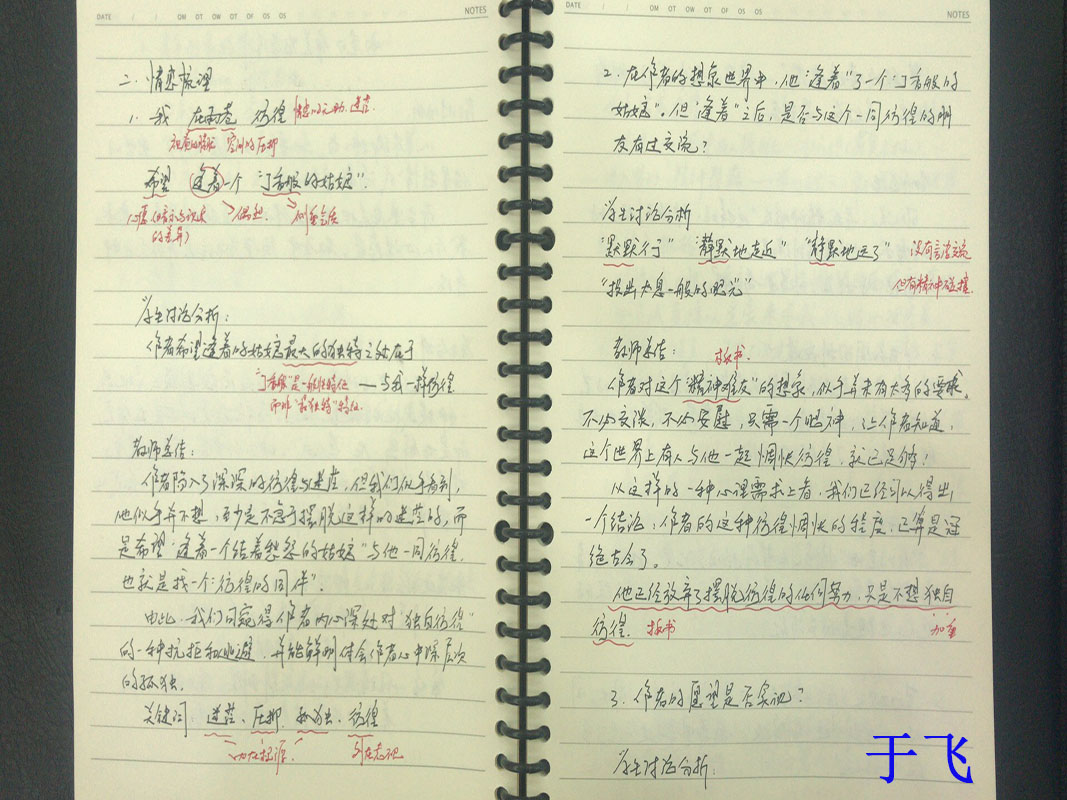 DATE / / OM OT OW OT OF OS OS NOTES
二、情感梳理
1. 我 在雨巷 彷徨 情思的元动、迷茫
客观的压抑
希望 逢着一个“丁香般的姑娘”.
偶然 气质
的差异)
学生讨论分析:
作者希望逢着的姑娘最大的独特之处在于
“丁香般”是一般性特征 —— 与我一样彷徨
而非“最独特”特征.
教师总结:
作者陷入了深深的彷徨与迷茫,但我们似乎看到,
他似乎并不想,至少是不急于摆脱这样的迷茫的,而
是希望“逢着一个结着愁怨的姑娘”与他一同彷徨,
也就是找一个“彷徨的同伴”.
由此,我们可窥得作者内心深处对“独自彷徨”
的一种抗拒和逃避,并能鲜明体会作者心中深层次
的孤独.
关键词:迷茫、压抑、孤独、彷徨
内在根源. 外在表现
DATE / / OM OT OW OT OF OS OS NOTES
2. 在作者的想象世界中,他“逢着”了一个“丁香般的
姑娘”。但“逢着”之后,是否与这个一同彷徨的朋
友有过交流?
学生讨论分析
“默默行” “静默地走近” “静默地远了” 没有言语交流
“投出太息一般的眼光” 但有精神碰撞.
教师总结: 板书.
作者对这个“精神难友”的想象,似乎并未有太多的要求,
不必交谈,不必安慰,只需一个眼神,让作者知道,
这个世界上有人与他一起惆怅彷徨,就已足够!
从这样的一种心理需求上看,我们已经可以得出
一个结论:作者的这种彷徨惆怅的程度,已算是冠
绝古今了。
他已经放弃了摆脱彷徨的任何努力,只是不想独自
彷徨. 板书 加重
3. 作者的愿望是否实现?
学生讨论分析:
于飞